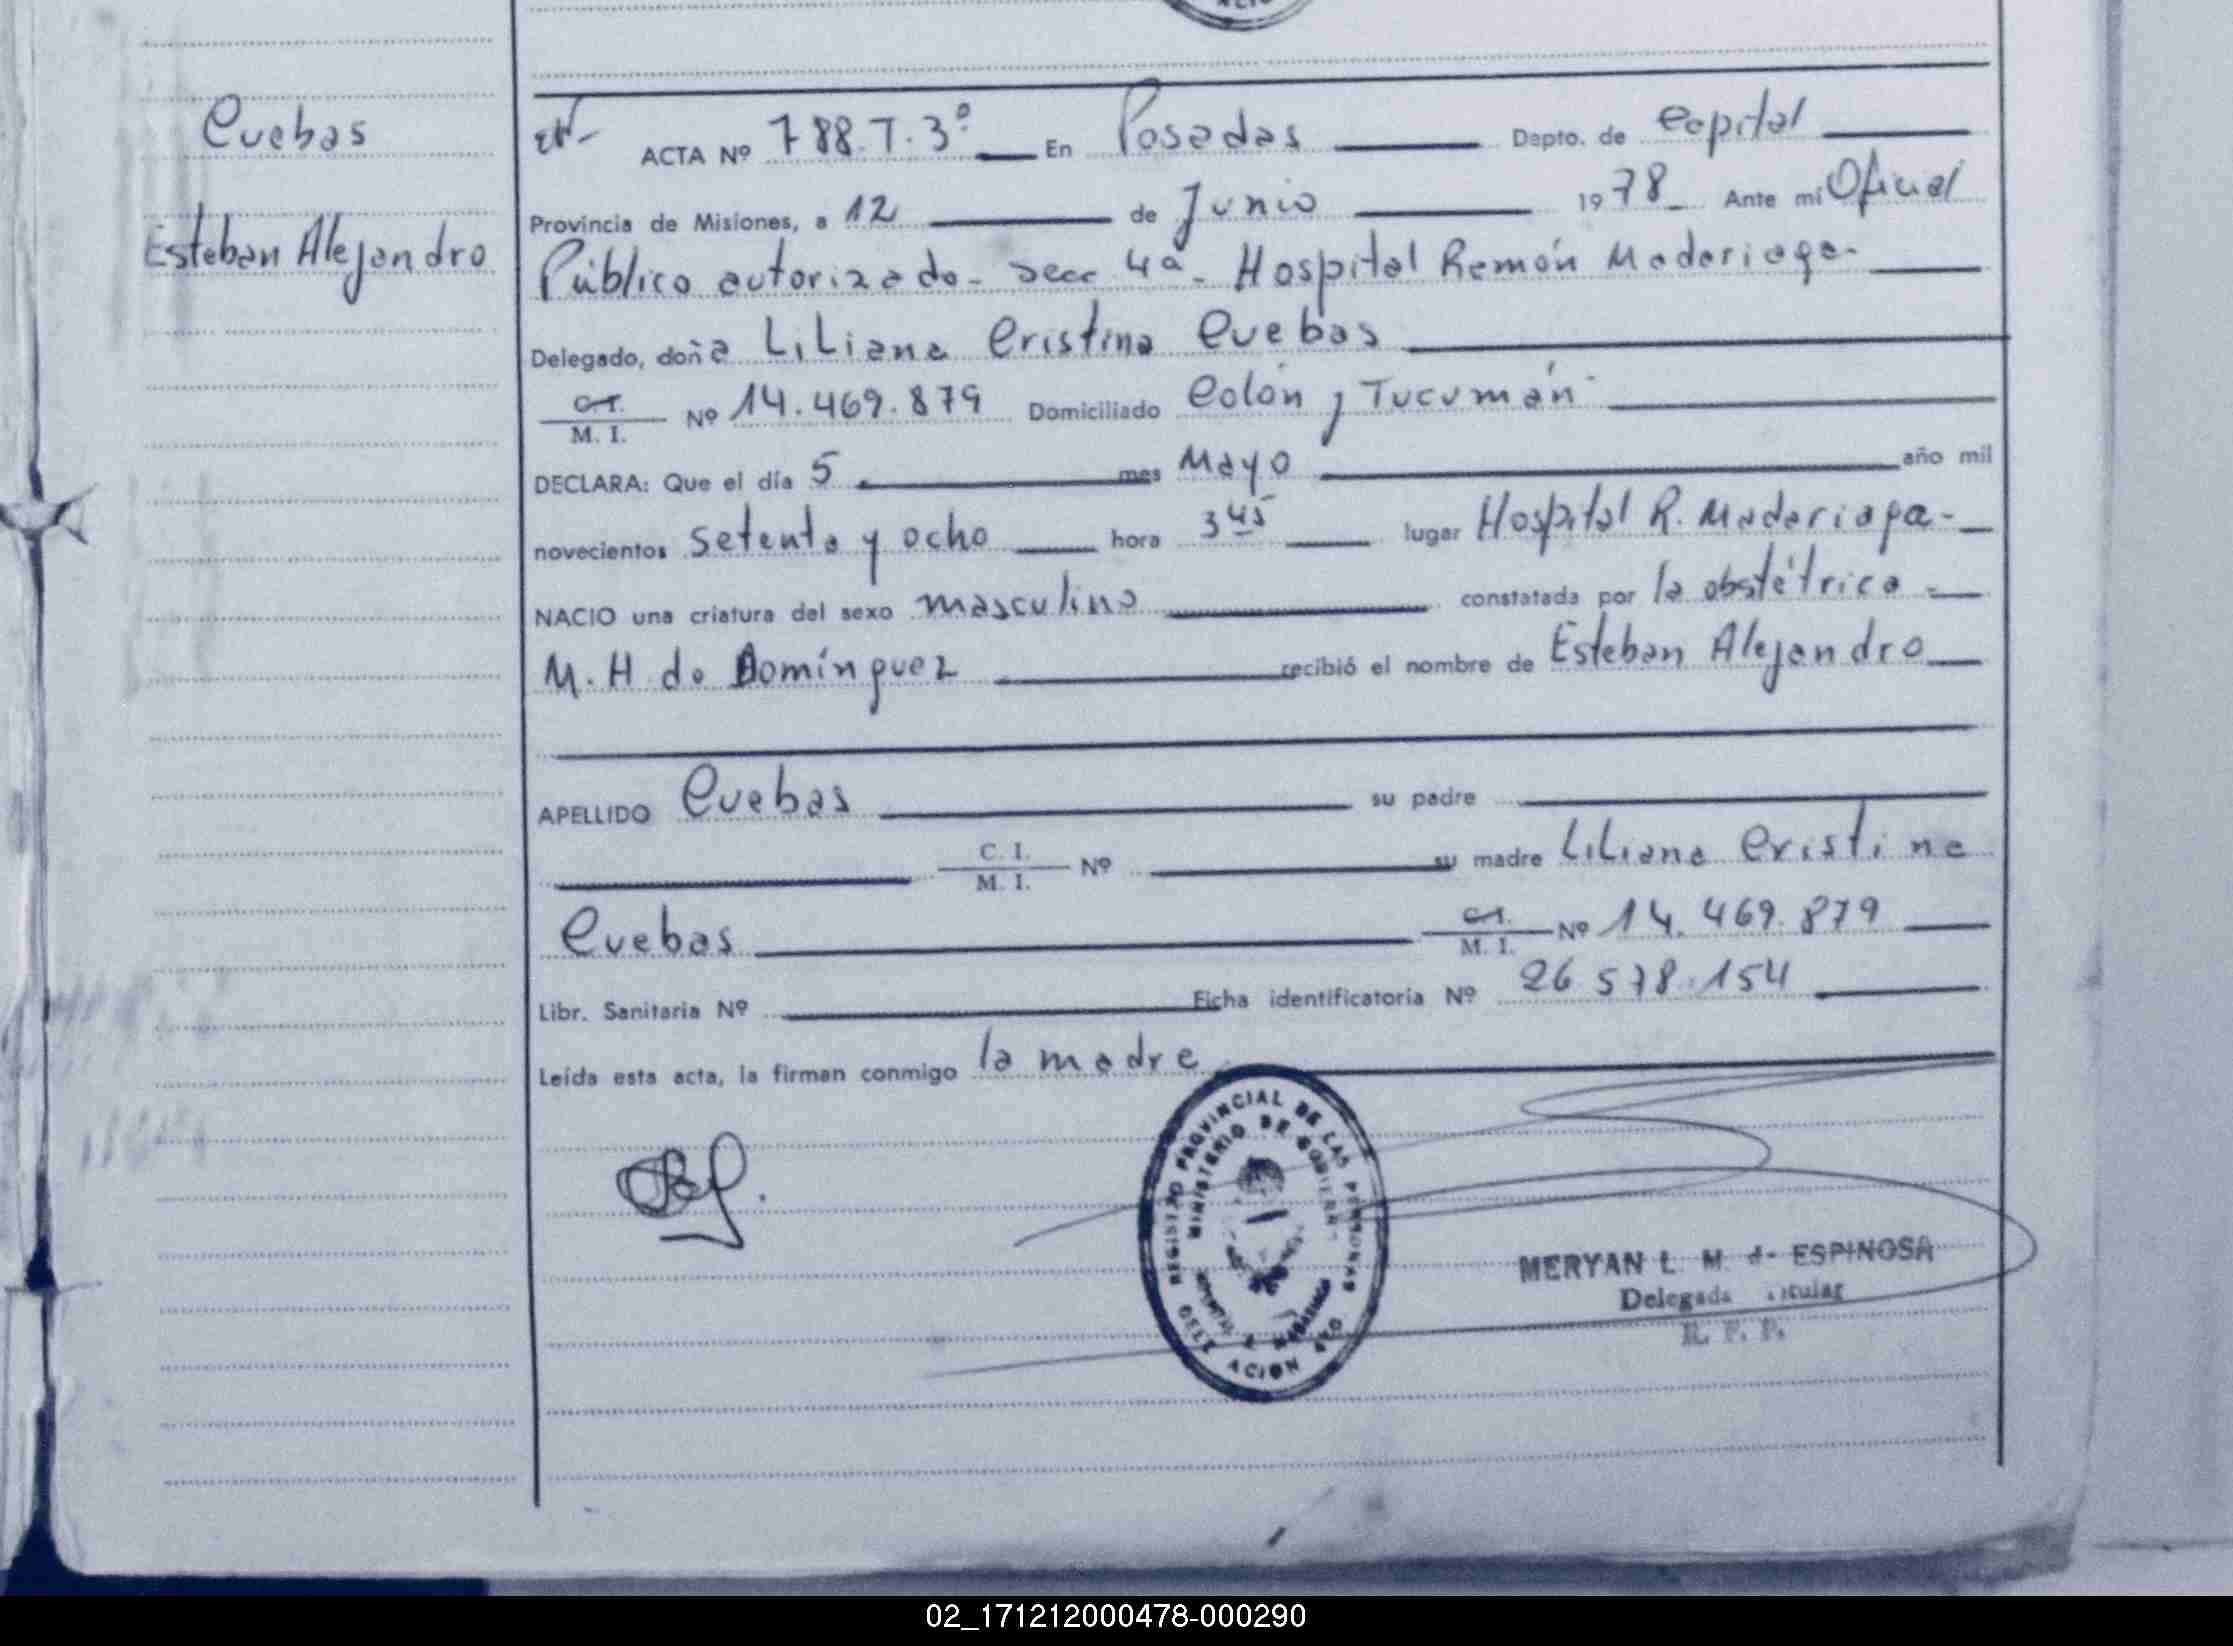 Cuebas
Esteban Alejandro
ACTA Nº 788. T. 3º En Posadas Depto. de Capital
Provincia de Misiones, a 12 de Junio 1978 Ante mi Oficial
Público autorizado - secc 4ª - Hospital Ramón Madariaga -
Delegado, doña Liliana Cristina Cuebas
C.I.
M. I. Nº 14.469.879 Domiciliado Colón y Tucumán
DECLARA: Que el día 5 mes Mayo año mil
novecientos setenta y ocho hora 3 45 lugar Hospital R. Madariaga -
NACIO una criatura del sexo masculino constatada por la obstétrica
M. H. de Domínguez recibió el nombre de Esteban Alejandro
APELLIDO Cuebas su padre
C. I.
M. I. Nº su madre Liliana Cristina
Cuebas C.I.
M. I. Nº 14.469.879
Libr. Sanitaria Nº Ficha identificatoria Nº 26 578.154
Leída esta acta, la firman conmigo la madre
REGISTRO PROVINCIAL DE LAS PERSONAS
MINISTERIO DE GOBIERNO
MERYAN L. M. de ESPINOSA
Delegada Titular
R. P. P.
02_171212000478-000290